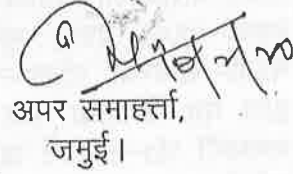 अपर समाहर्त्ता,
जमुई।